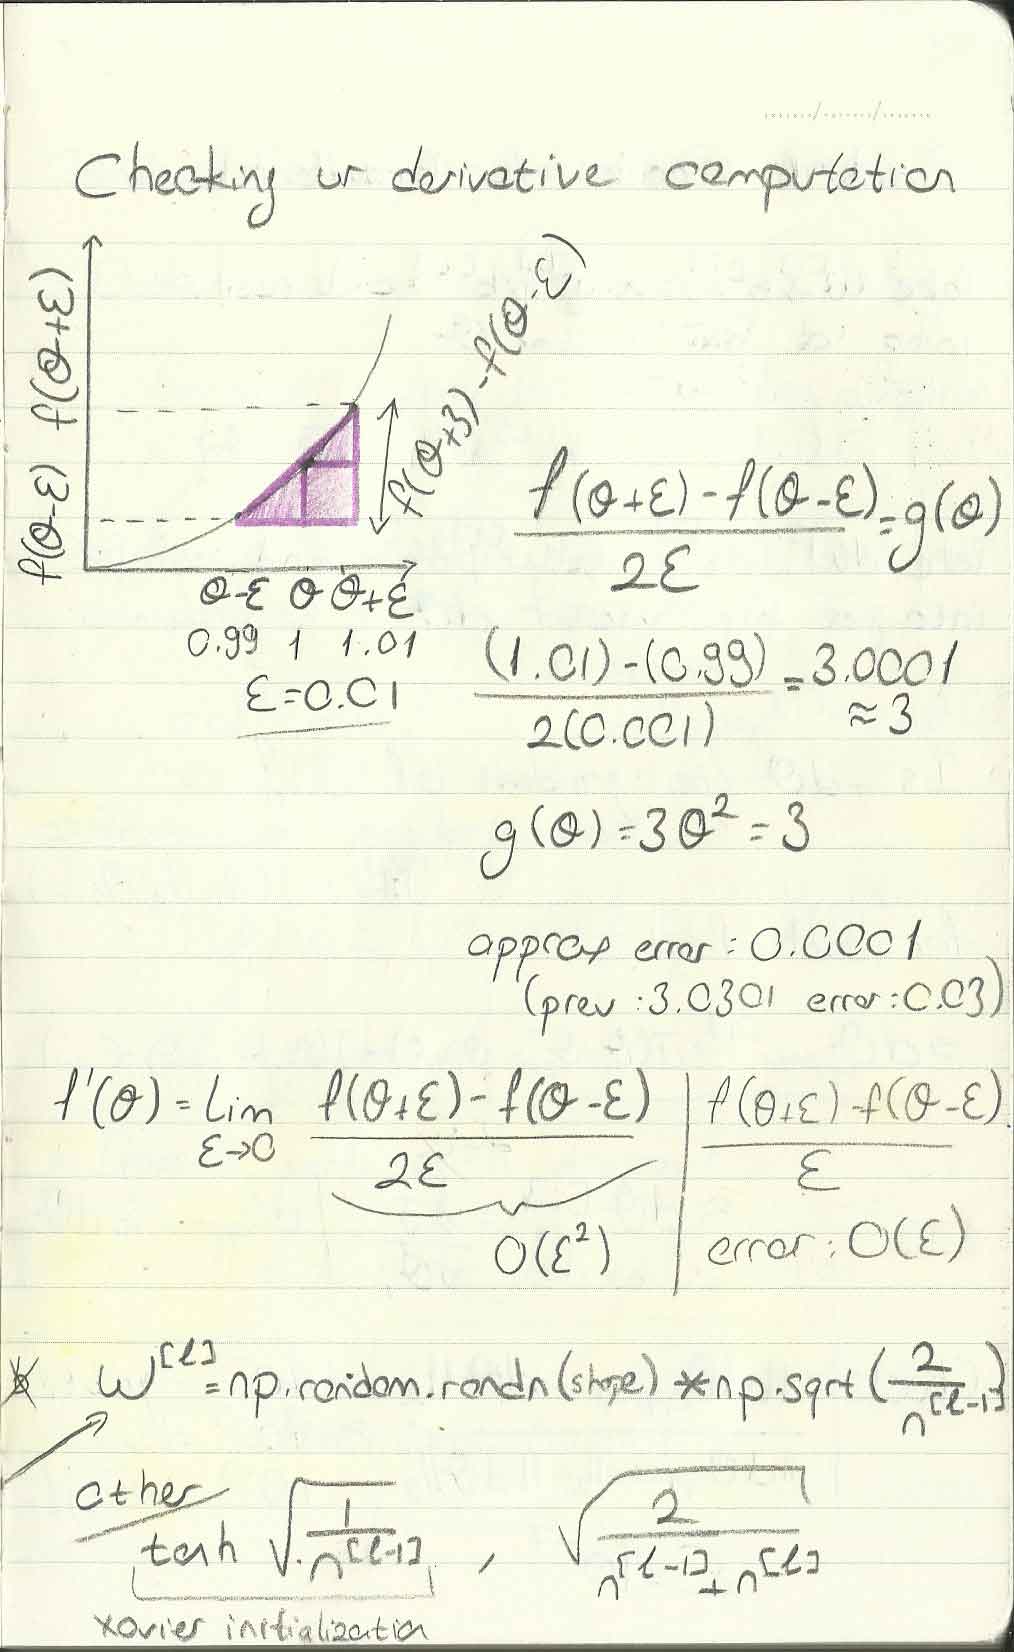 Checking ur derivative computation
f(θ-ε) f(θ+ε)
f(θ+3) - f(θ-ε)
θ-ε θ θ+ε
0.99 1 1.01
ε=0.01
f(θ+ε) - f(θ-ε) / 2ε = g(θ)
(1.01)-(0.99) / 2(0.001) = 3.0001
≈3
g(θ) = 3θ² = 3
approx error: 0.0001
(prev: 3.0301 error: 0.03)
f'(θ) = lim ε→0 f(θ+ε) - f(θ-ε) / 2ε
O(ε²)
f(θ+ε) - f(θ-ε) / ε
error: O(ε)
* W^[l] = np.random.randn(shape) * np.sqrt(2 / n^[l-1])
other
tanh √(1 / n^[l-1]) , √(2 / n^[l-1] + n^[l])
xavier initialization